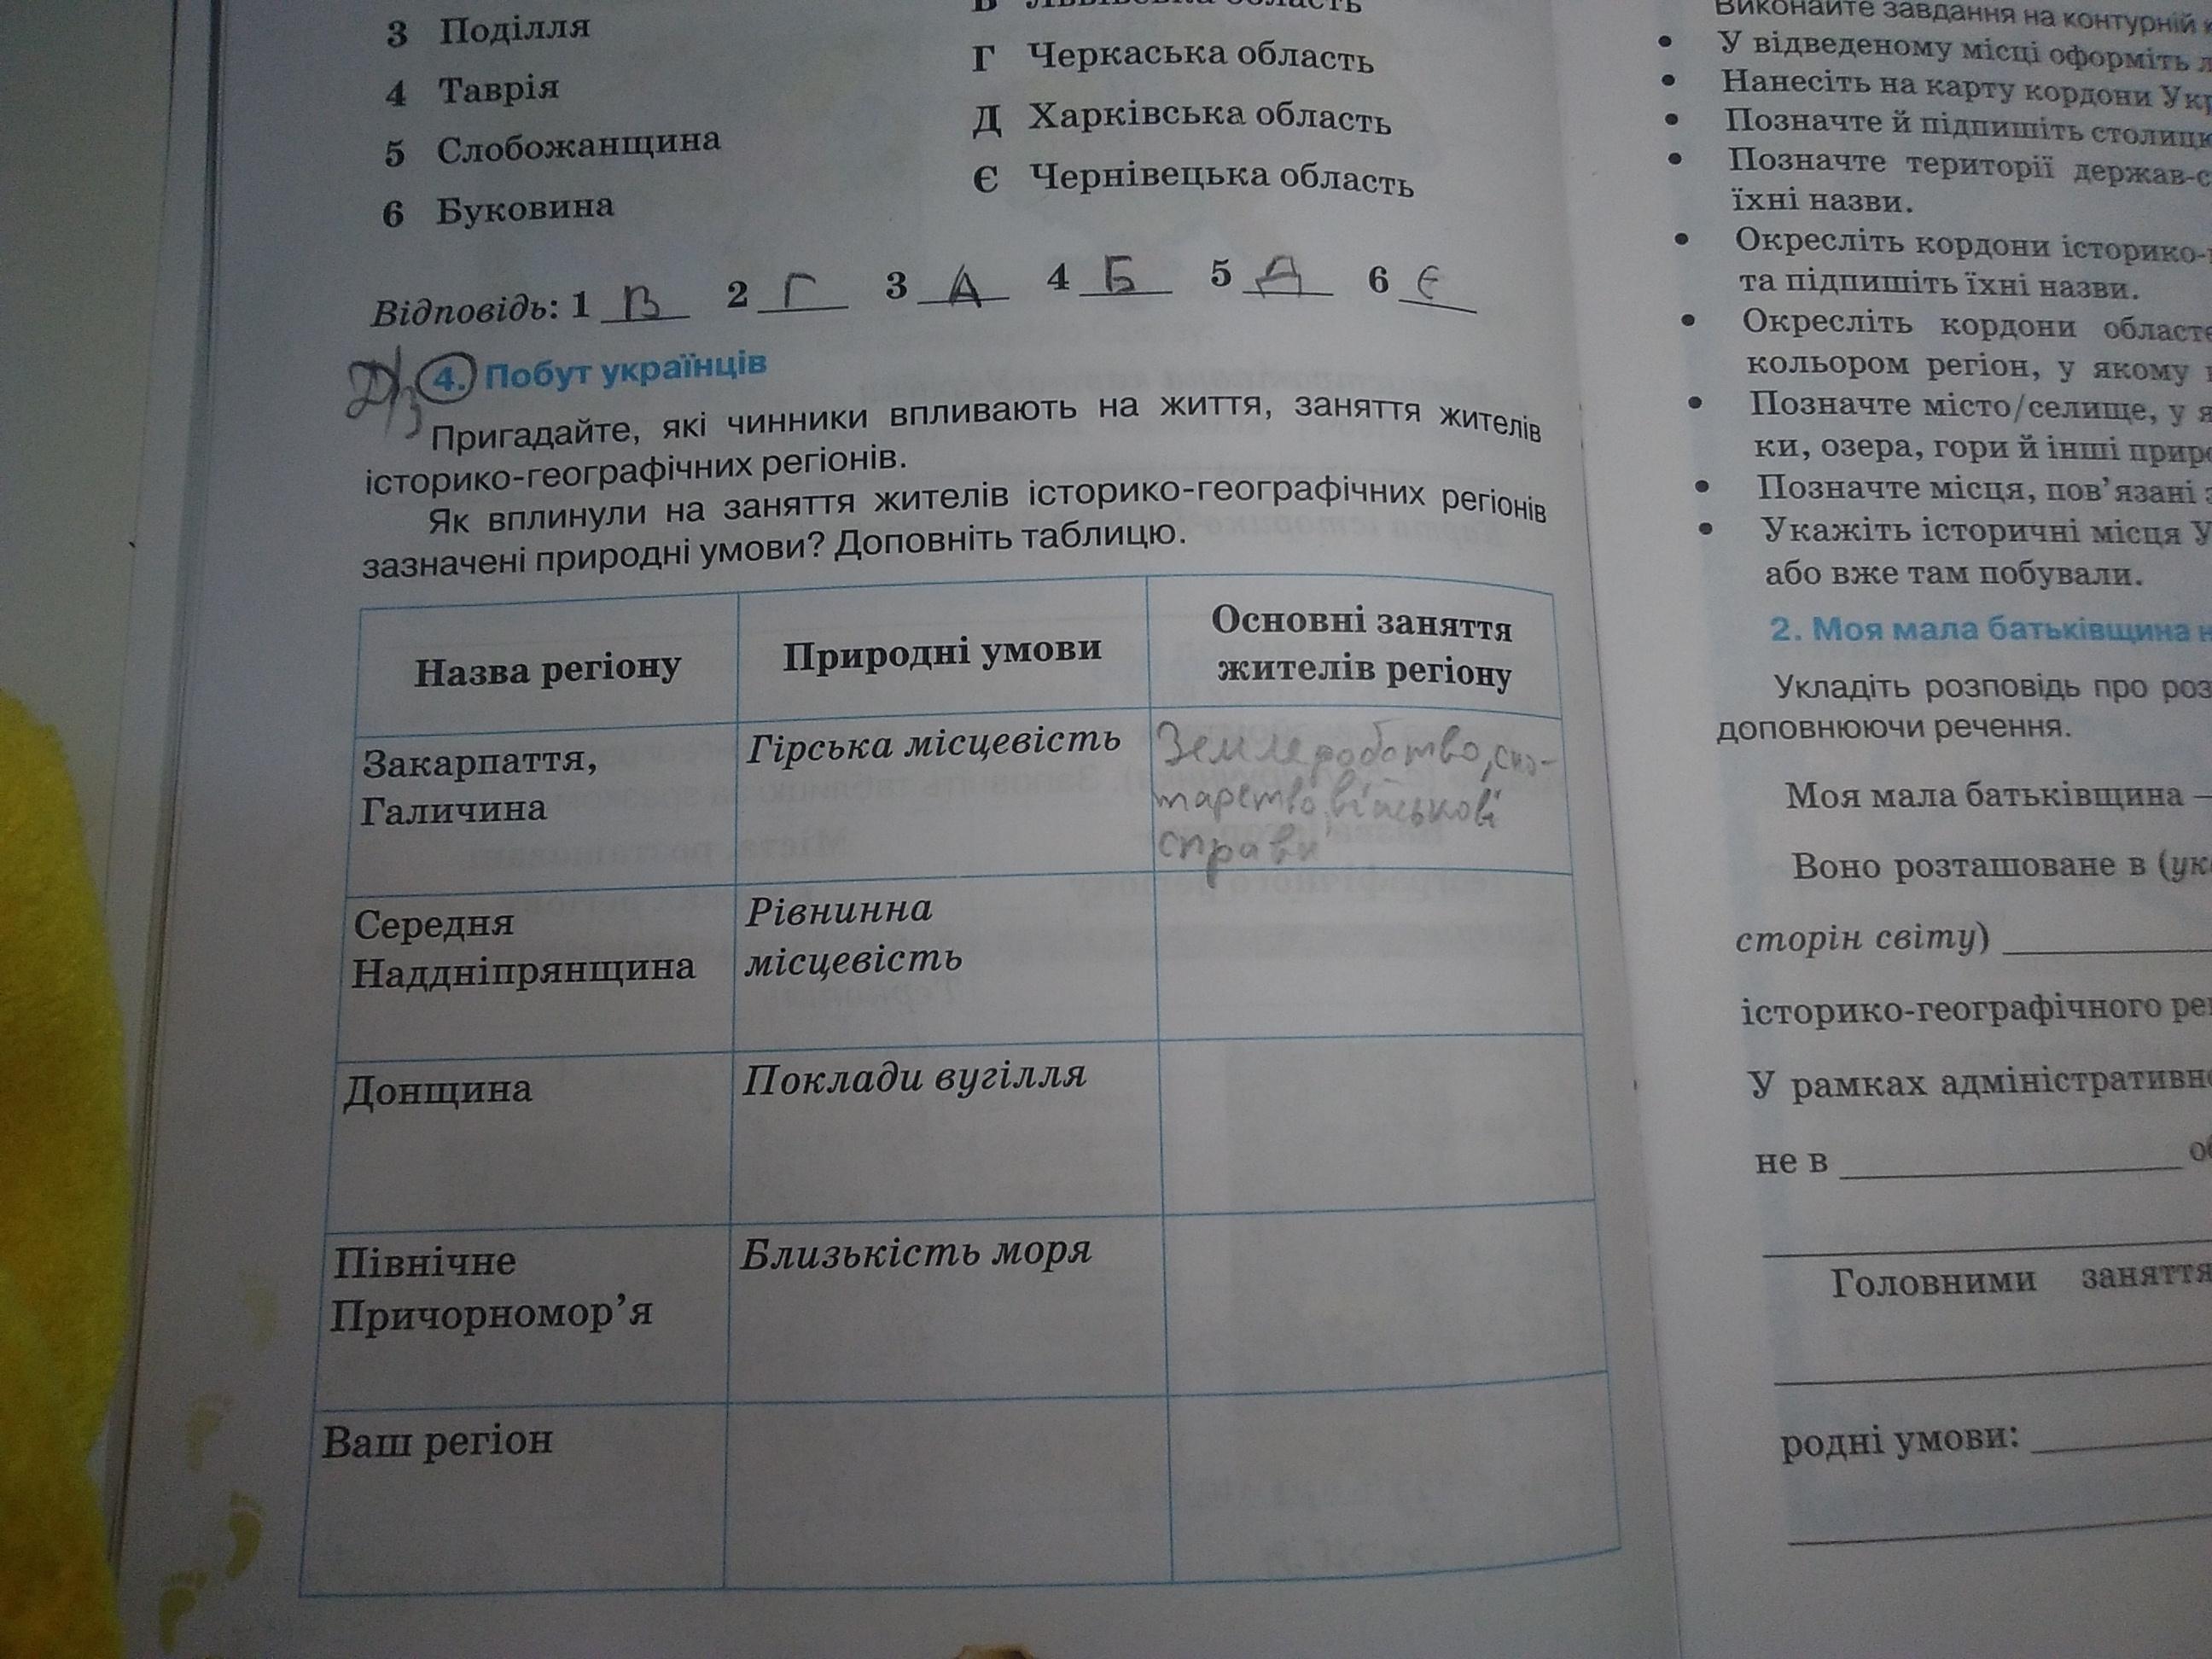 3 Поділля
4 Таврія
5 Слобожанщина
6 Буковина
В Львівська область
Г Черкаська область
Д Харківська область
Є Чернівецька область
Відповідь: 1 В 2 Г 3 А 4 Б 5 Д 6 Є
Д/з 4. Побут українців
Пригадайте, які чинники впливають на життя, заняття жителів
історико-географічних регіонів.
Як вплинули на заняття жителів історико-географічних регіонів
зазначені природні умови? Доповніть таблицю.
Назва регіону
Природні умови
Основні заняття
жителів регіону
Закарпаття,
Галичина
Гірська місцевість
Землеробство, ско-
тарство, військові
справи
Середня
Наддніпрянщина
Рівнинна
місцевість
Донщина
Поклади вугілля
Північне
Причорномор’я
Близькість моря
Ваш регіон
Виконайте завдання на контурній
• У відведеному місці оформіть
• Нанесіть на карту кордони
• Позначте й підпишіть
• Позначте території
їхні назви.
• Окресліть кордони
та підпишіть їхні назви.
• Окресліть кордони
кольором регіон, у якому
• Позначте місто/селище, у
ки, озера, гори й інші
• Позначте місця, пов’язані
• Укажіть історичні місця
або вже там побували.
2. Моя мала батьківщина
Укладіть розповідь про
доповнюючи речення.
Моя мала батьківщина —
Воно розташоване в
сторін світу)
історико-географічного
У рамках
не в
Головними
родні умови: